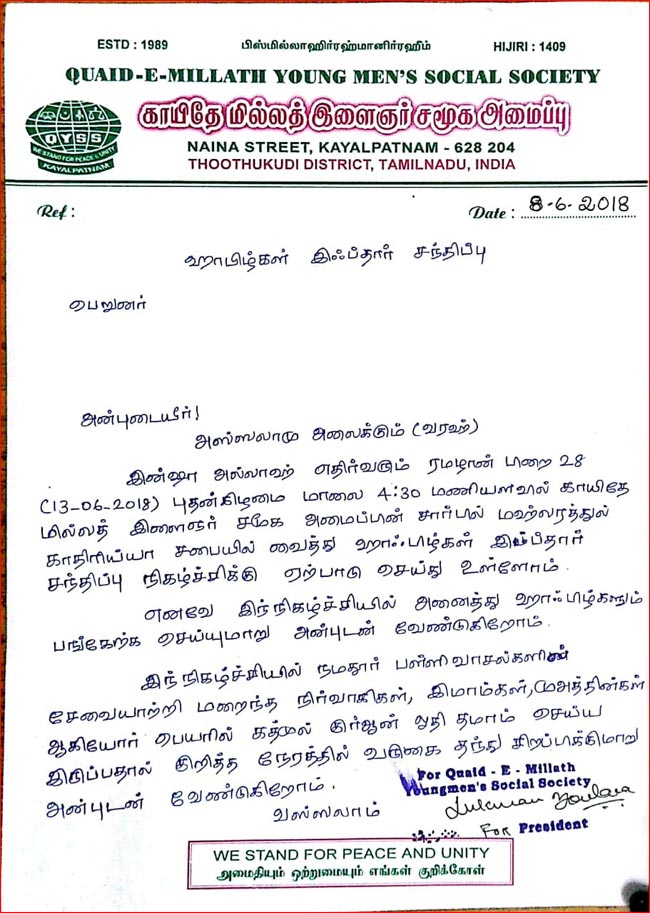 ESTD : 1989 பிஸ்மில்லாஹிர்ரஹ்மானிர்ரஹீம் HIJIRI : 1409
QUAID-E-MILLATH YOUNG MEN'S SOCIAL SOCIETY
காயிதே மில்லத் இளைஞர் சமூக அமைப்பு
QYSS
WE STAND FOR PEACE & UNITY
KAYALPATNAM
NAINA STREET, KAYALPATNAM - 628 204
THOOTHUKUDI DISTRICT, TAMILNADU, INDIA
Ref : Date : 8-6-2018
ஹாபிழ்கள் இஃப்தார் சந்திப்பு
பெறுனர்
அன்புடையீர்!
அஸ்ஸலாமு அலைக்கும் (வரஹ்)
இன்ஷா அல்லாஹ் எதிர்வரும் ரமழான் பிறை 28
(13-06-2018) புதன்கிழமை மாலை 4:30 மணியளவில் காயிதே
மில்லத் இளைஞர் சமூக அமைப்பின் சார்பில் மஹ்லரத்துல்
காதிரிய்யா சபையில் வைத்து ஹாஃபிழ்கள் இஃப்தார்
சந்திப்பு நிகழ்ச்சிக்கு ஏற்பாடு செய்து உள்ளோம்.
எனவே இந்நிகழ்ச்சியில் அனைத்து ஹாஃபிழ்களும்
பங்கேற்க செய்யுமாறு அன்புடன் வேண்டுகிறோம்.
இந்நிகழ்ச்சியில் நமதூர் பள்ளிவாசல்களின்
சேவையாற்றி மறைந்த நிர்வாகிகள், இமாம்கள், முஅத்தின்கள்
ஆகியோர் பெயரில் கத்முல் குர்ஆன் ஓதி தமாம் செய்ய
இருப்பதால் குறித்த நேரத்தில் வருகை தந்து சிறப்பிக்குமாறு
அன்புடன் வேண்டுகிறோம்.
வஸ்ஸலாம்
For Quaid - E - Millath
Youngmen's Social Society
For President
WE STAND FOR PEACE AND UNITY
அமைதியும் ஒற்றுமையும் எங்கள் குறிக்கோள்